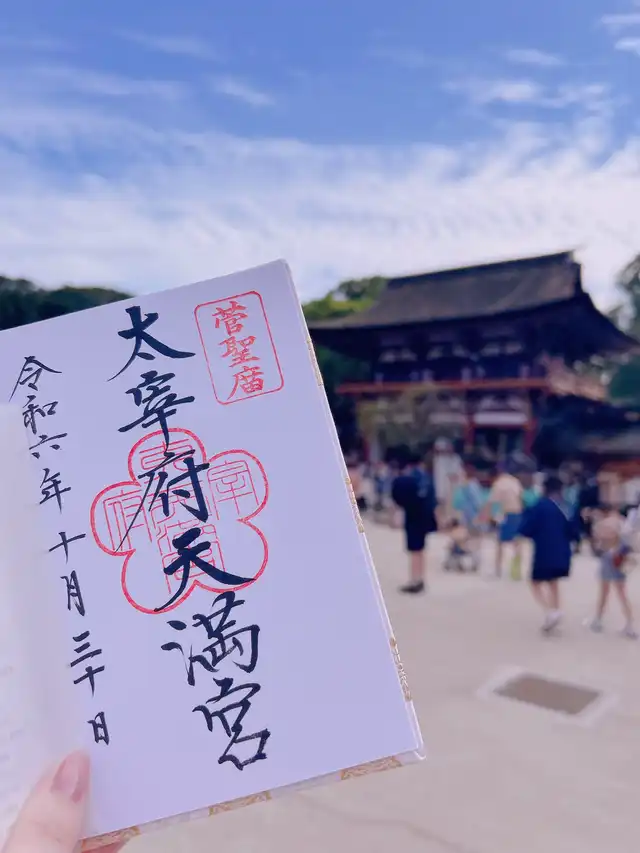 菅聖廟
太宰府天満宮
令和六年十月三十日